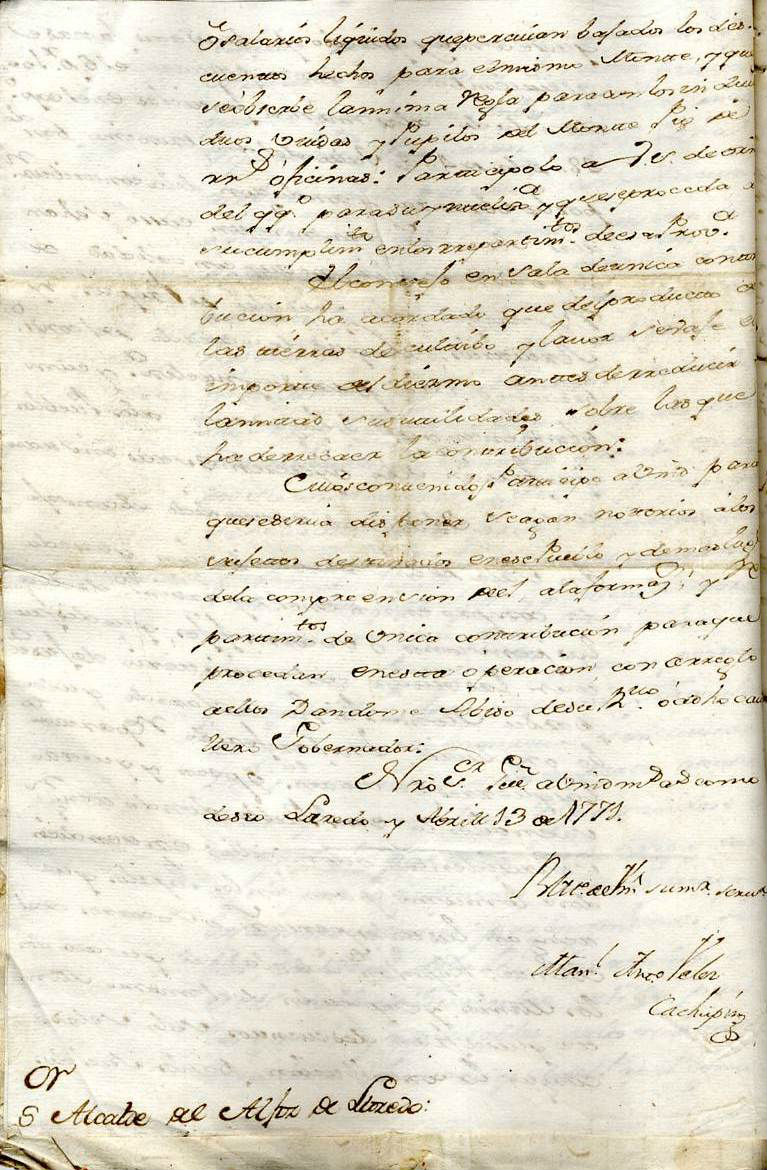 y salarios liquidos que perciuian bajados los des-
cuentos hechos para el mismo Monte, y que
se obserbe la misma regla para con los indivi-
duos Viudas y Pupilos del Monte Pio de
oficinas: Participolo a V.S. de orn
del para su y que se proceda a
su cumplimto en los repartimtos de esa Prova
El consejo en Sala de unica contri
bución ha acordado que del producto de
las tierras de cultibo y lavor se vaje el
importe del diezmo antes de reducir
la mitad sus utilidades sobre las que
ha de recaer la contribución:
Cuios contenidos Participo a Vmd para
que se sirva disponer se agan notorios á los
en ese Pueblo y demas
de la compreension del a la formazn y Re
partimtos de Unica contribución para que
procedan en esta óperacion con arreglo
a ellos Dandome Abiso de su Rvo
Gobernador:
Nro Sr a Vmd ms as como
deseo Laredo y Abril 13 de 1771.
Blm de Vm su mr serv
Manl Anto Velez
Cachupin
Or
S Alcalde del Alfoz de Lloredo: